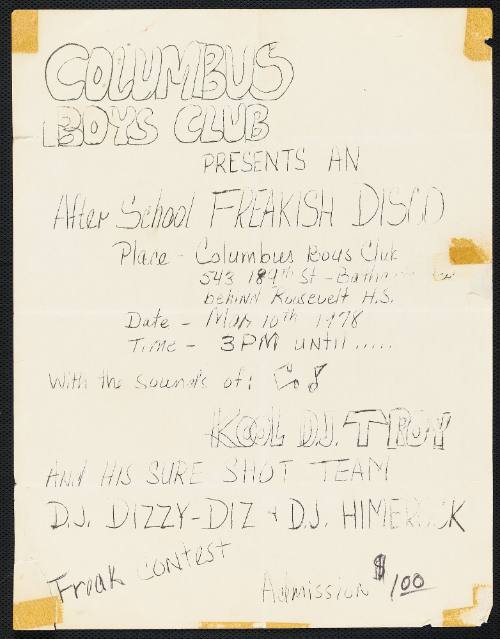 COLUMBUS
BOYS CLUB
PRESENTS AN
After School FREAKISH DISCO
Place - Columbus Boys Club
543 189th St -
behind Roosevelt H.S.
Date - Mar 10th 1978
Time - 3PM until .....
With the sounds of:
KOOL DJ. TROY
And HIS SURE SHOT TEAM
D.J. DIZZY-DIZ + D.J.
Freak contest
Admission $1.00